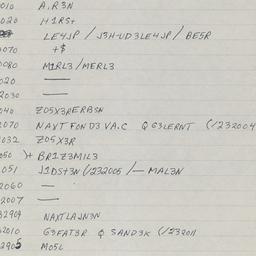 010 A.R3N
020 H1RST
LE4JP / J3H-UD3LE4JP / BE5R
070 +$
0080 M1RL3/MERL3
020 —
2030 —
040 Z05X3RERBSN
2070 NAXTFOND3VA.C & G3LERNT (1/232004
032 Z05X3R
050 )+ BR1Z3MIL3
051 J1DST3N (1/232005 /— MAL3N
2060 —
2007 —
32909 NAXTLAJN3N
32010 G3FAT3R & SAND3K (1/232011
32905 MO5L